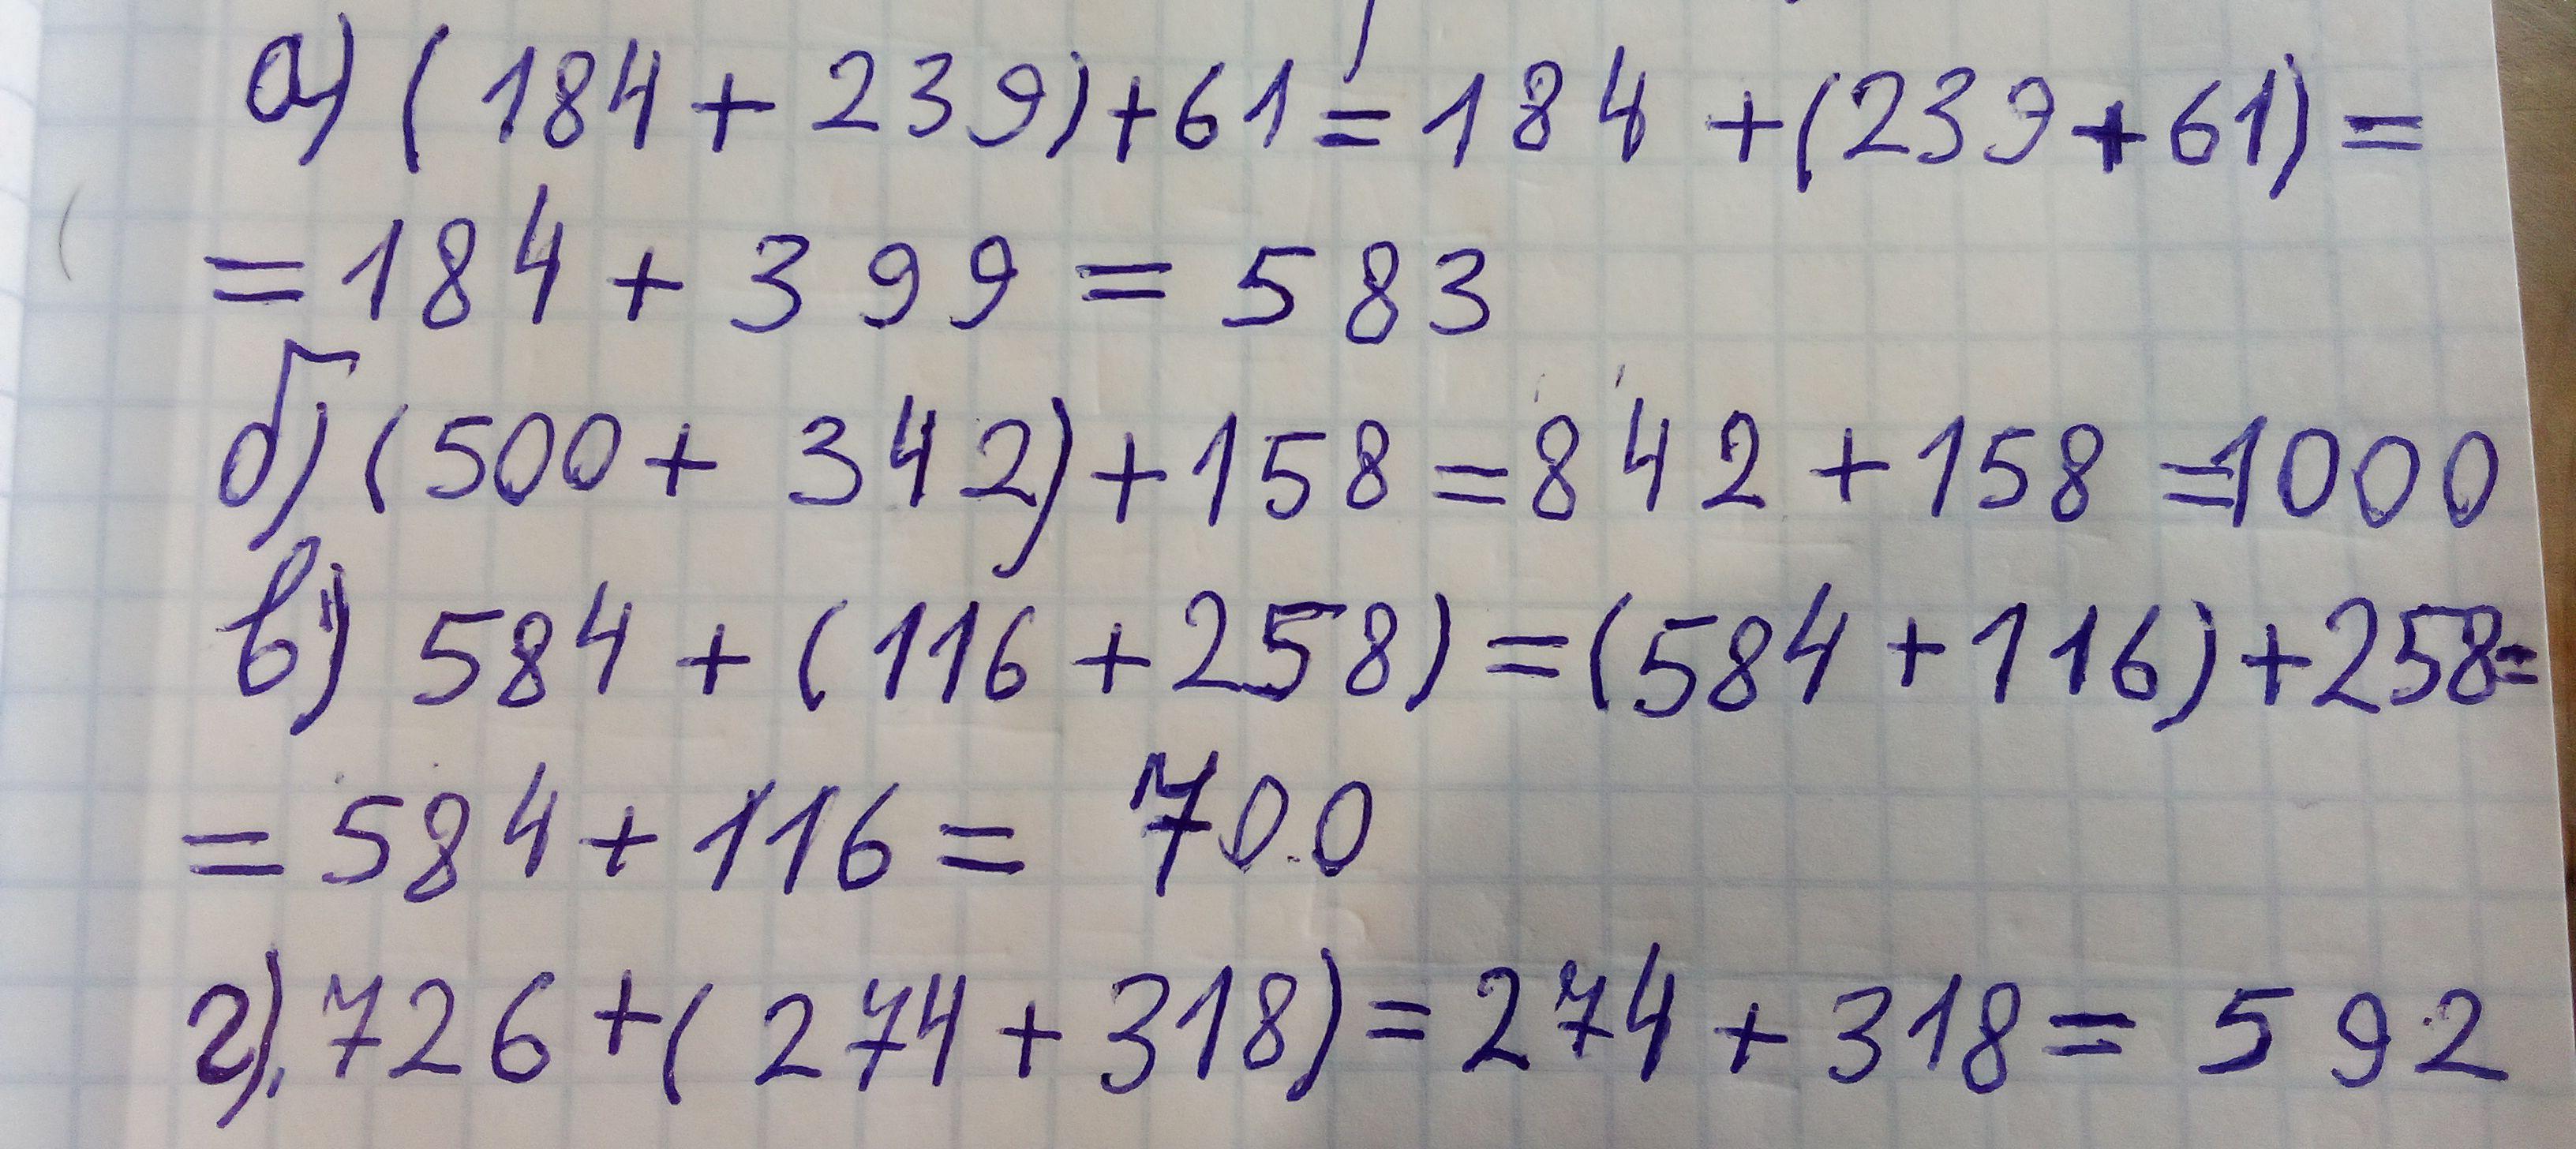 а) (184 + 239) + 61 = 184 + (239 + 61) =
= 184 + 399 = 583
б) (500 + 342) + 158 = 842 + 158 = 1000
в) 584 + (116 + 258) = (584 + 116) + 258 =
= 584 + 116 = 700
г). 726 + (274 + 318) = 274 + 318 = 592